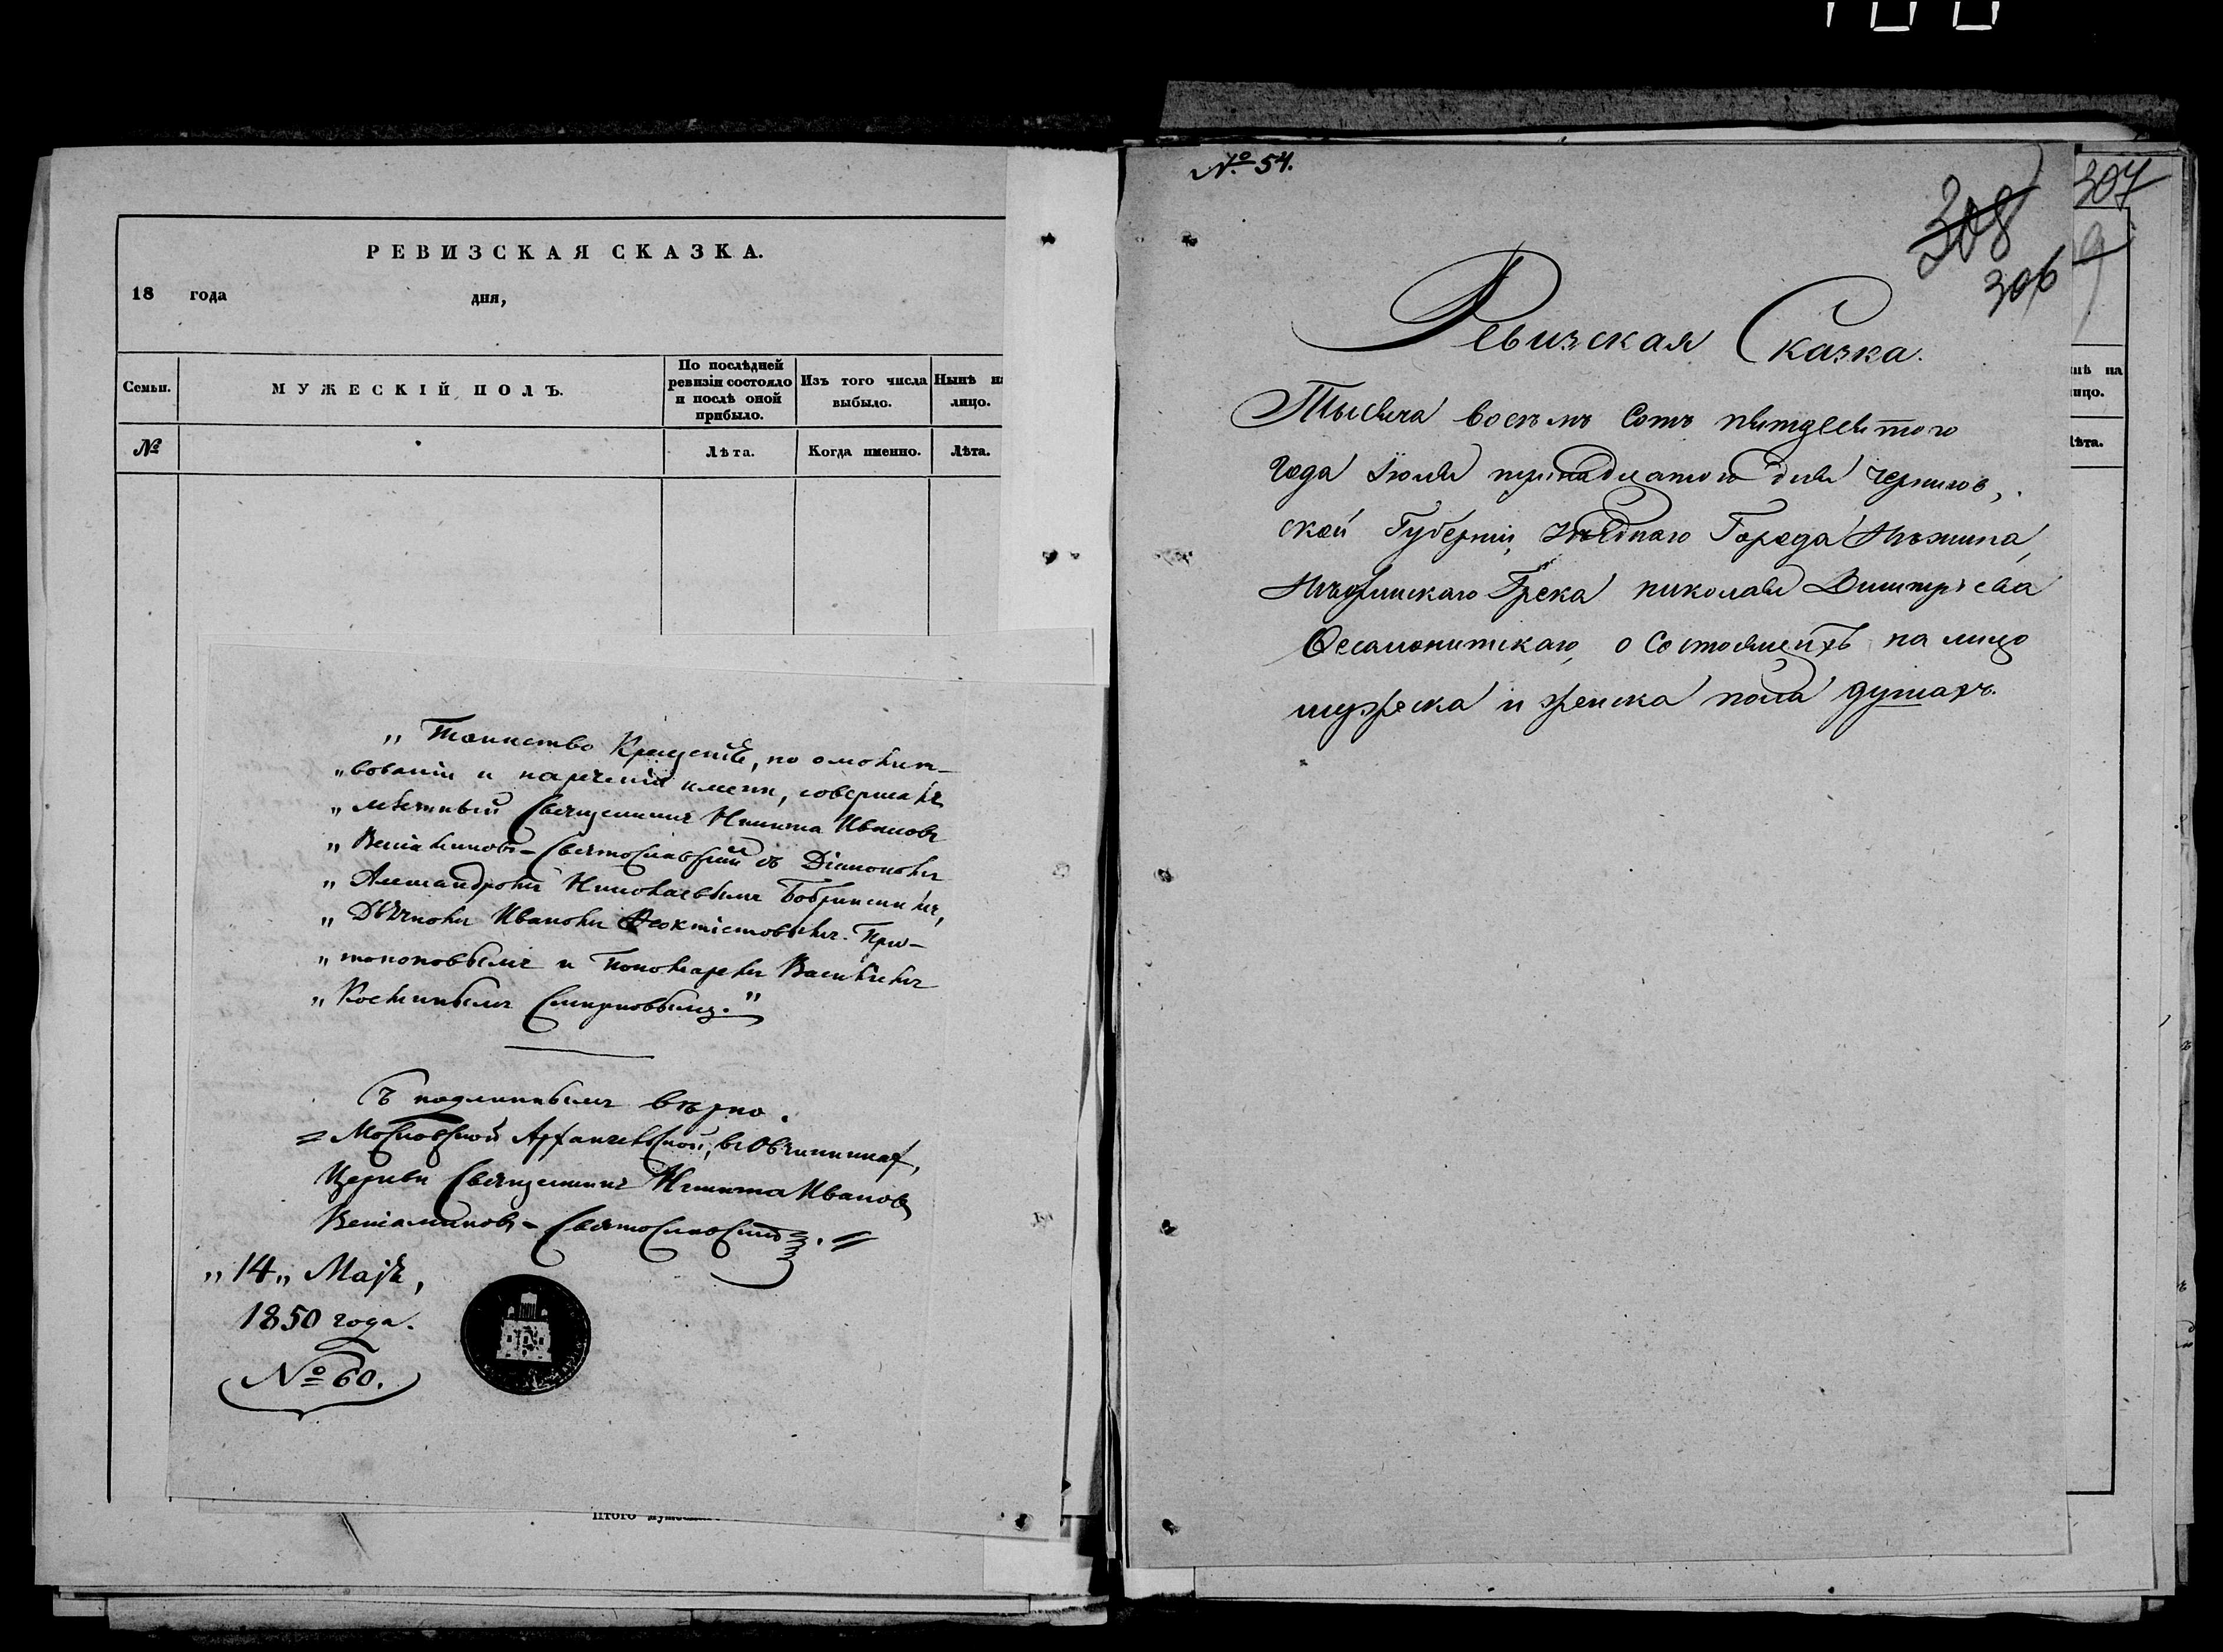 РЕВИЗСКАЯ СКАЗКА.
18 года дня,
Семьи. МУЖЕСКІЙ ПОЛЪ. По послѣдней ревизіи состояло и послѣ оной прибыло. Изъ того числа выбыло. Нынѣ на лицо.
№ Лѣта. Когда именно. Лѣта.
„ Таинство Крещенія, по омолит-
„ вованіи и нареченіи имени, совершалъ
„ мѣстный Священникъ Никита Ивановъ
„ Веніаминовъ-Святославскій съ Діакономъ
„ Александромъ Николаевымъ Бобринскимъ,
„ Дьячкомъ Иваномъ Ѳеоктистовымъ Про-
„ топоповымъ и Пономаремъ Василіемъ
„ Косминымъ Смирновымъ.“
Съ подлиннымъ вѣрно.
= Московской Архангельской, въ Овчинникахъ,
Церкви Священникъ Никита Ивановъ
Веніаминовъ-Святославскій. =
„ 14 „ Маія,
1850 года.
№ 60.
Итого
№ 54.
308
306
307
9
Ревизская Сказка.
Тысяча восемь Сотъ пятдесятого
Года Іюля тринадцатого дня Чернигов,
ской Губерніи, уѣзднаго Города Нѣжина,
Нѣжинскаго Грека николая Димитріева
Ѳесалонитскаго, о Состоящихъ на лицо
мужеска и женска пола душахъ.
нѣ на
лицо.
Лѣта.